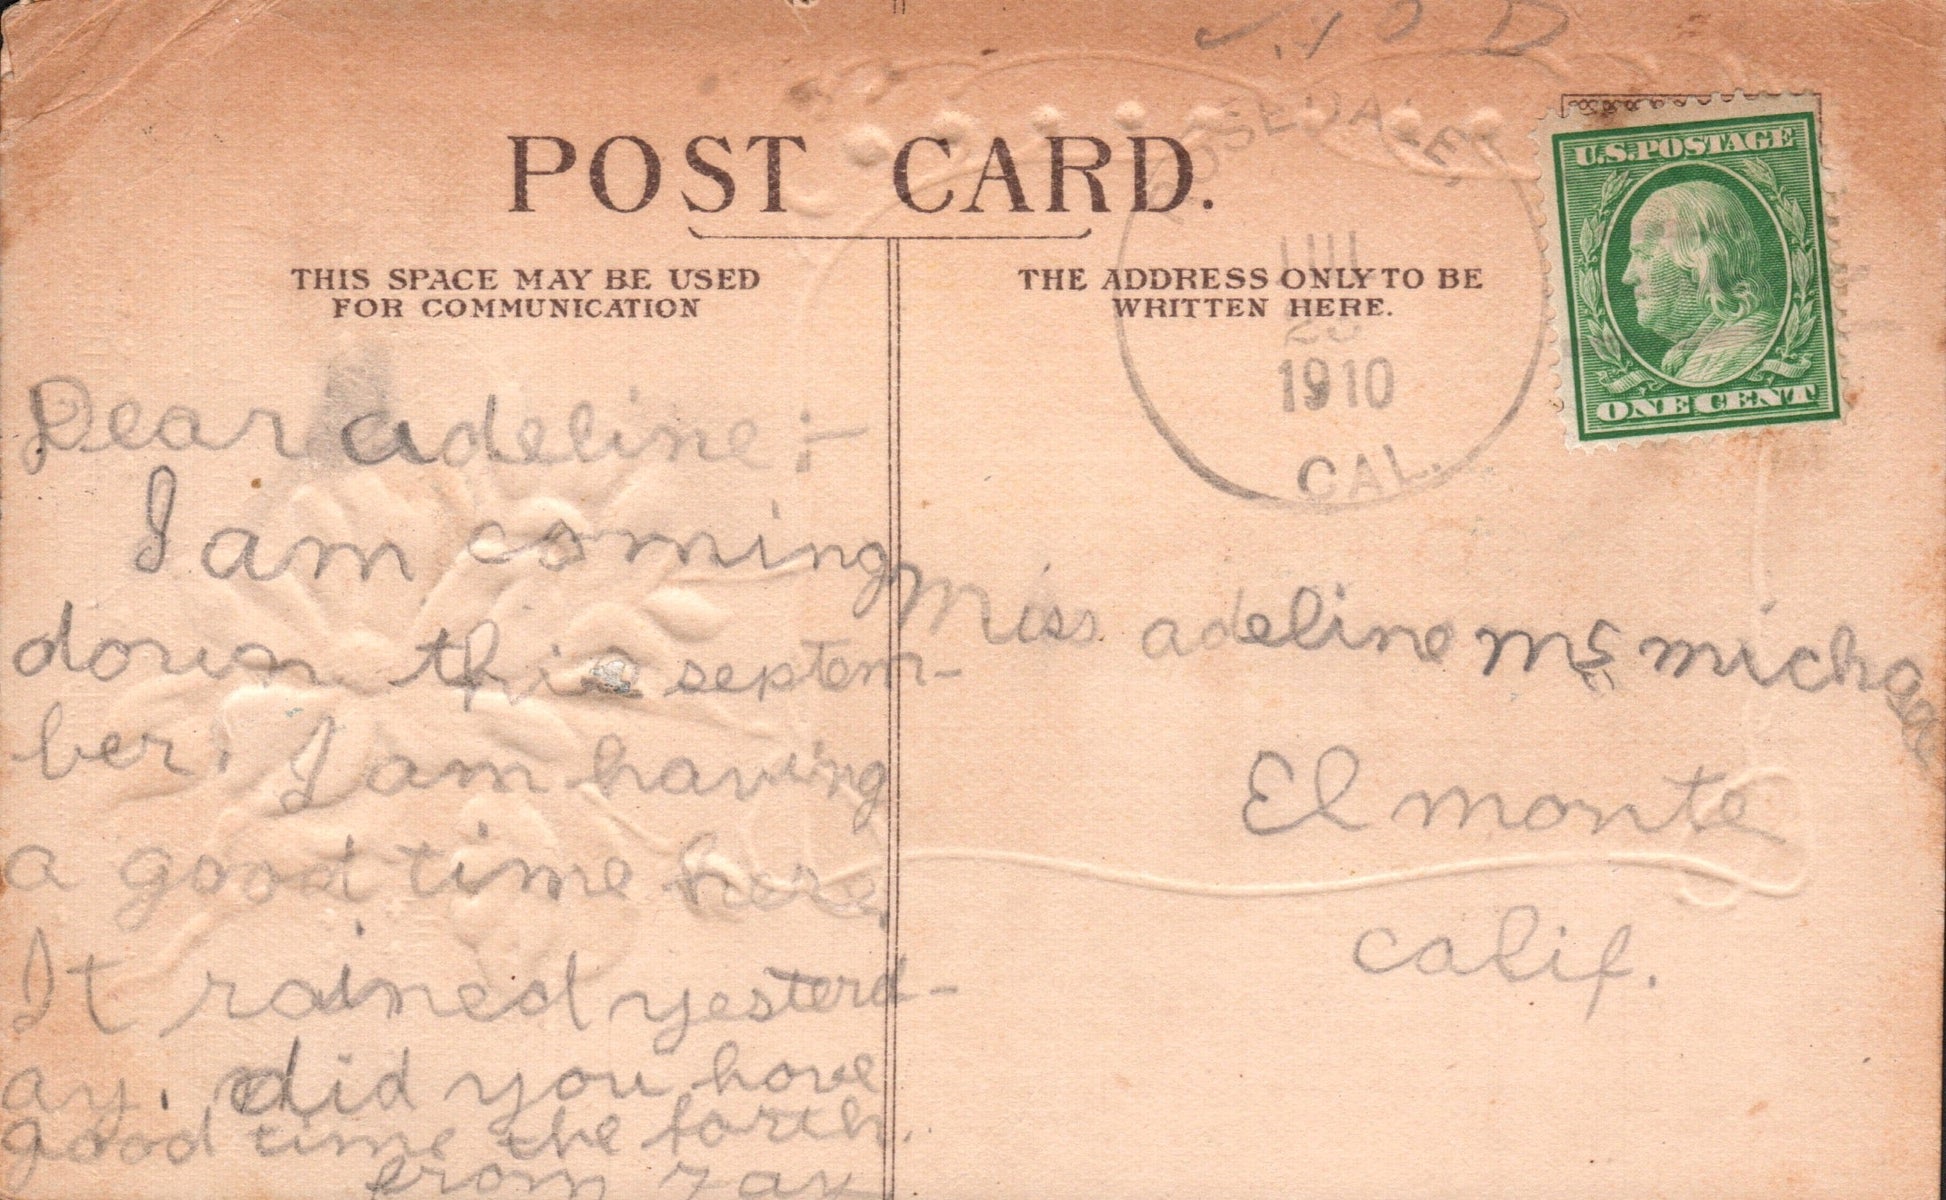 POST CARD.
THIS SPACE MAY BE USED
FOR COMMUNICATION
THE ADDRESS ONLY TO BE
WRITTEN HERE.
ROSEDALE,
JUL
1910
CAL.
U.S. POSTAGE
ONE CENT
Dear adeline:-
I am coming
down this septem-
ber. I am having
a good time here.
It rained yesterd-
ay. did you have
good time the forth.
from
Miss adeline Mc michael
El monte
calif.